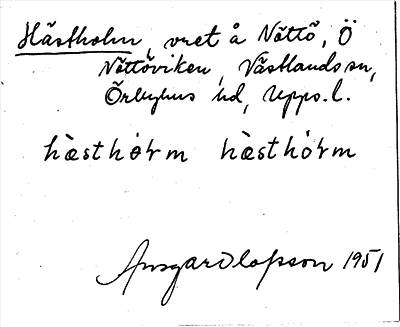 Hästholm, vret å Nöttö, Ö
Nöttöviken, Västlands sn,
Örbyhus hd, Upps. l.
hæsthórm hæsthórm
Ansgar Olofsson 1951